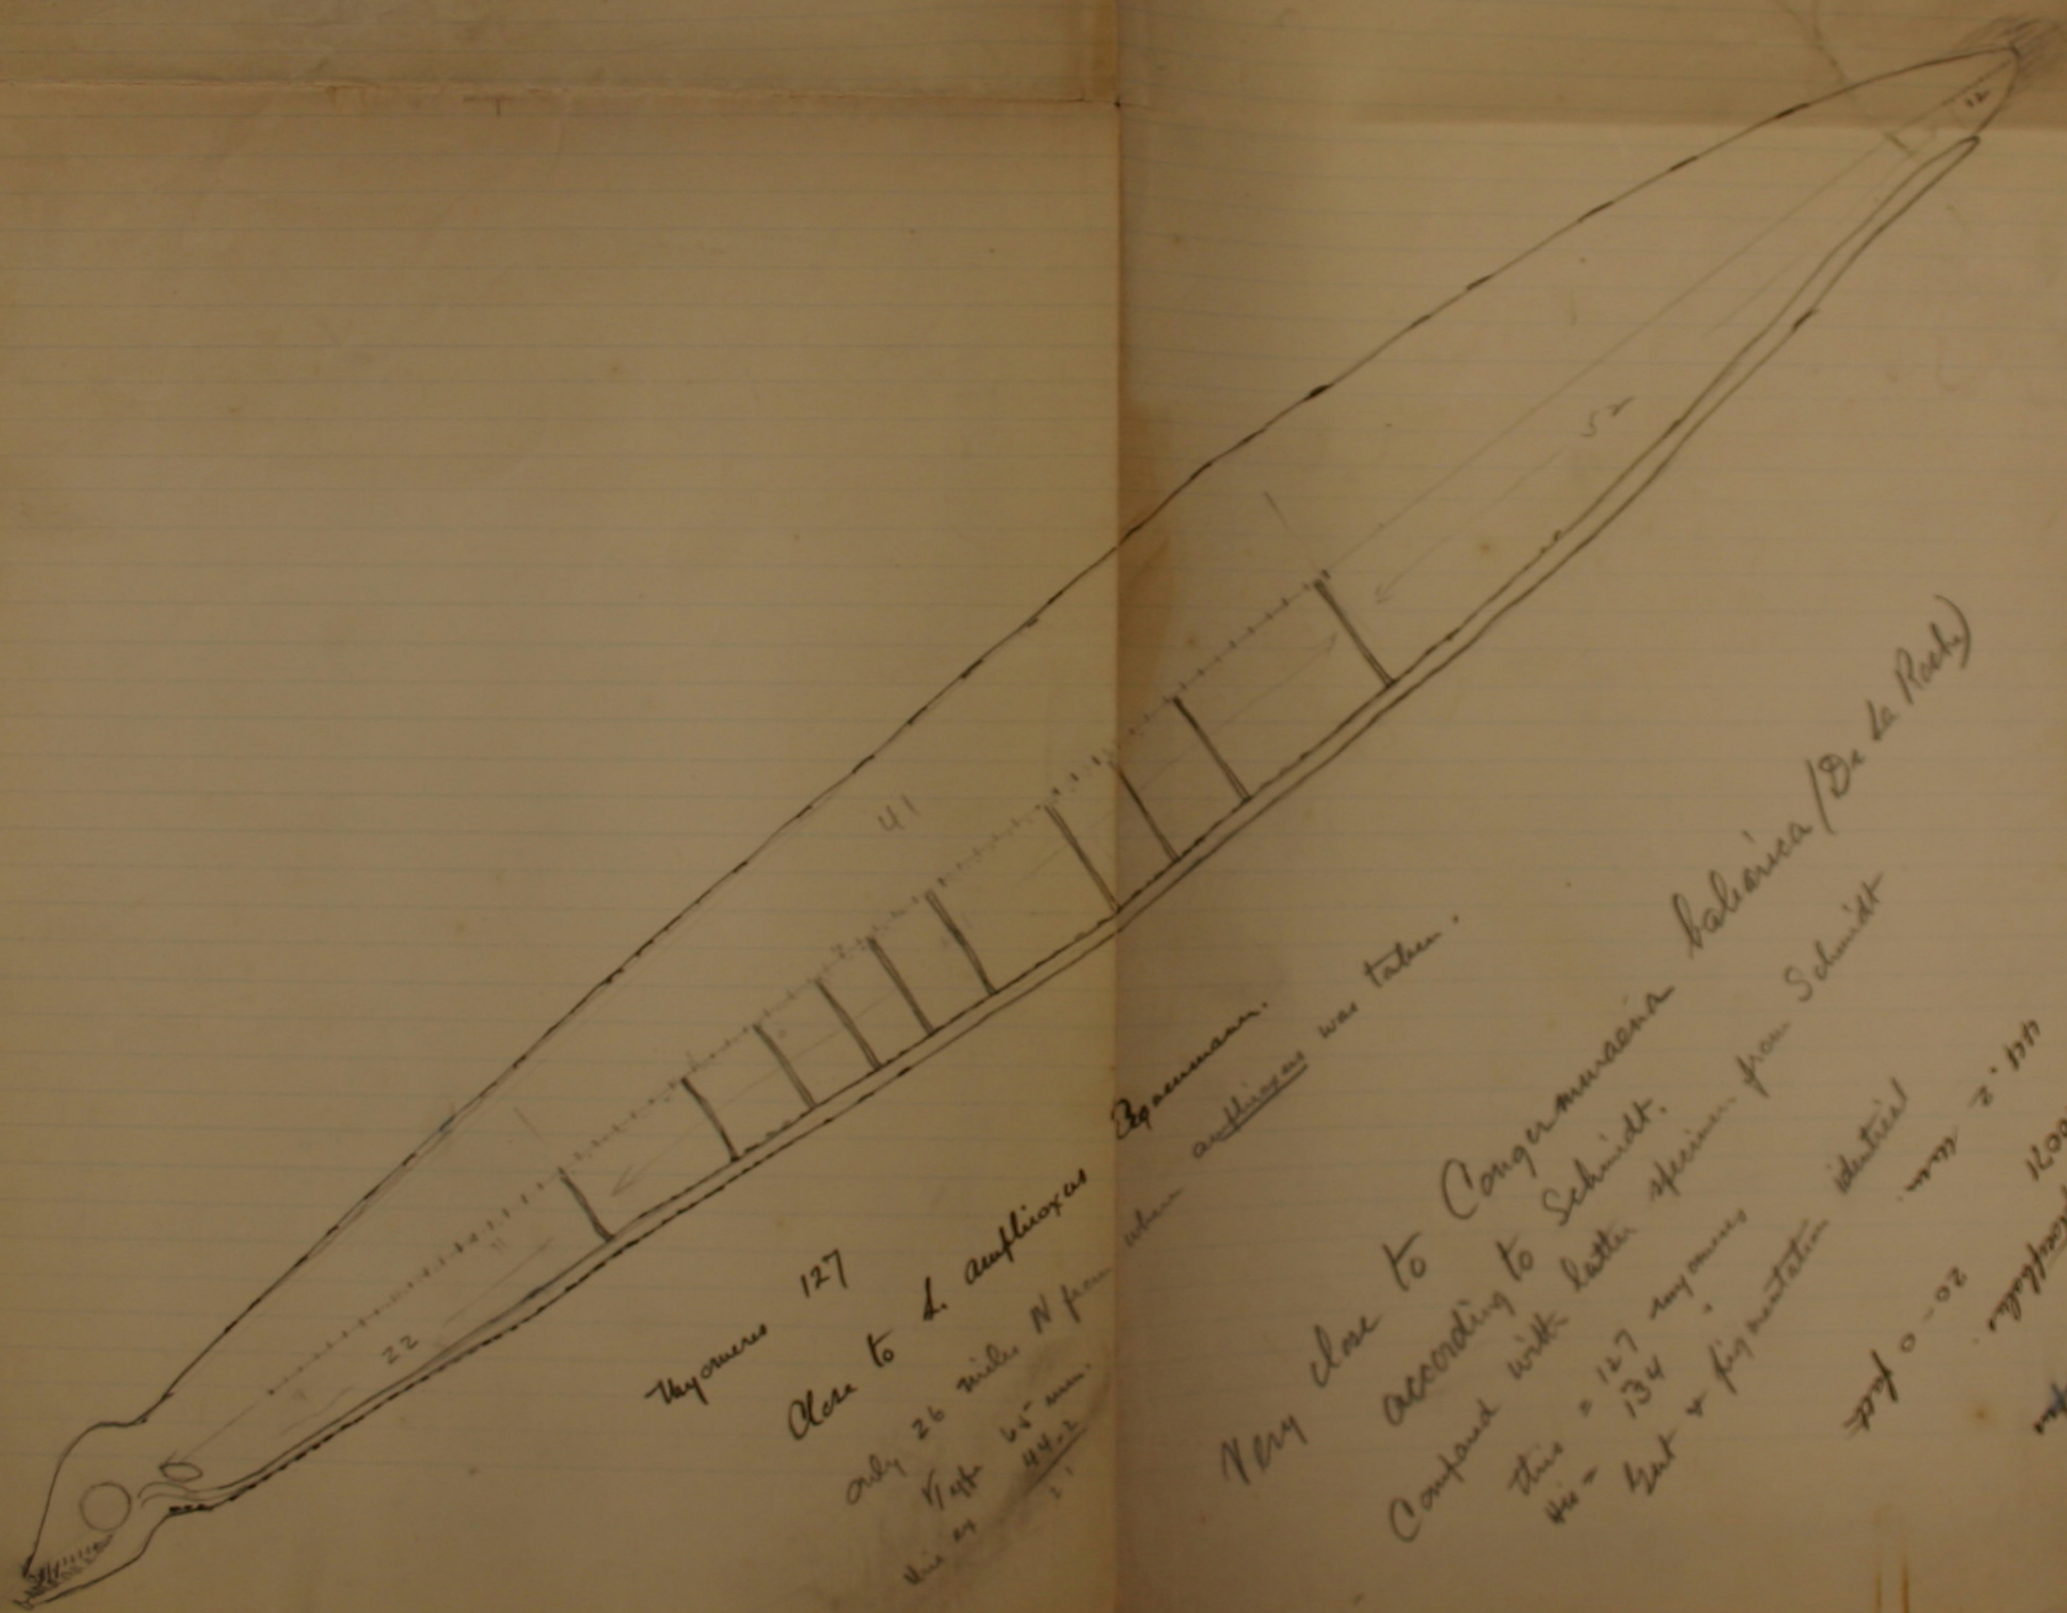 12
52
41
22
Myomeres 127
Close to L. amphioxus Eigenmann.
only 26 miles N from where amphioxus was taken.
Type 65 mm.
this sp 44.2
Very close to Congermuraena balearica (De La Roche)
according to Schmidt.
Compared with latter specimen from Schmidt
this = 127 myomeres
His = 134 "
Gut & pigmentation identical
44.2 mm.
20-0 fath